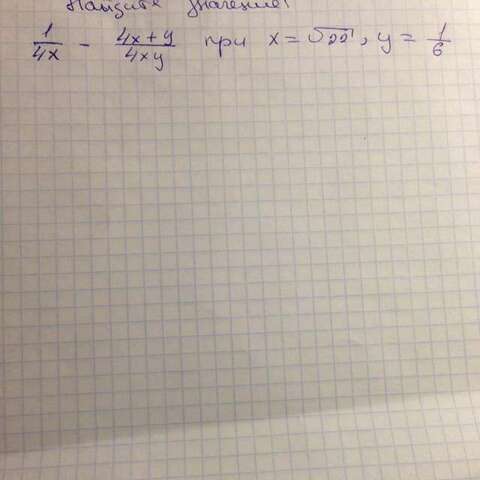 Найдите значение:
1/4x - 4x+y/4xy при x = √22, y = 1/6